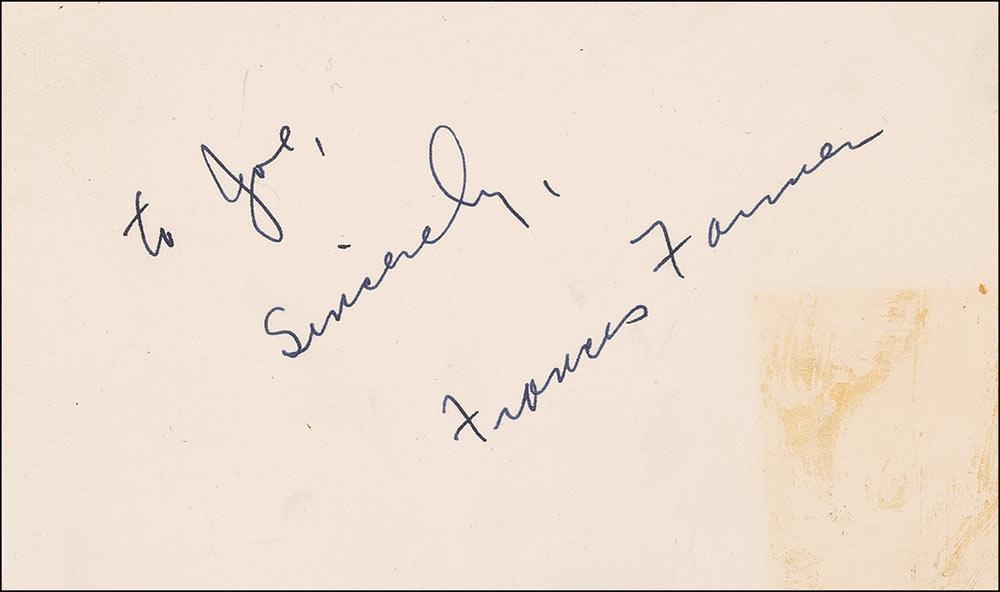 to Joe,
Sincerely,
Frances Farmer